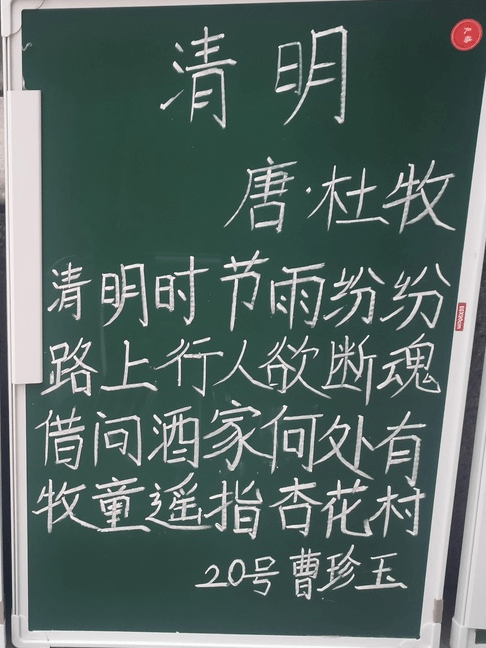 清明
唐·杜牧
清明时节雨纷纷
路上行人欲断魂
借问酒家何处有
牧童遥指杏花村
20号曹珍玉